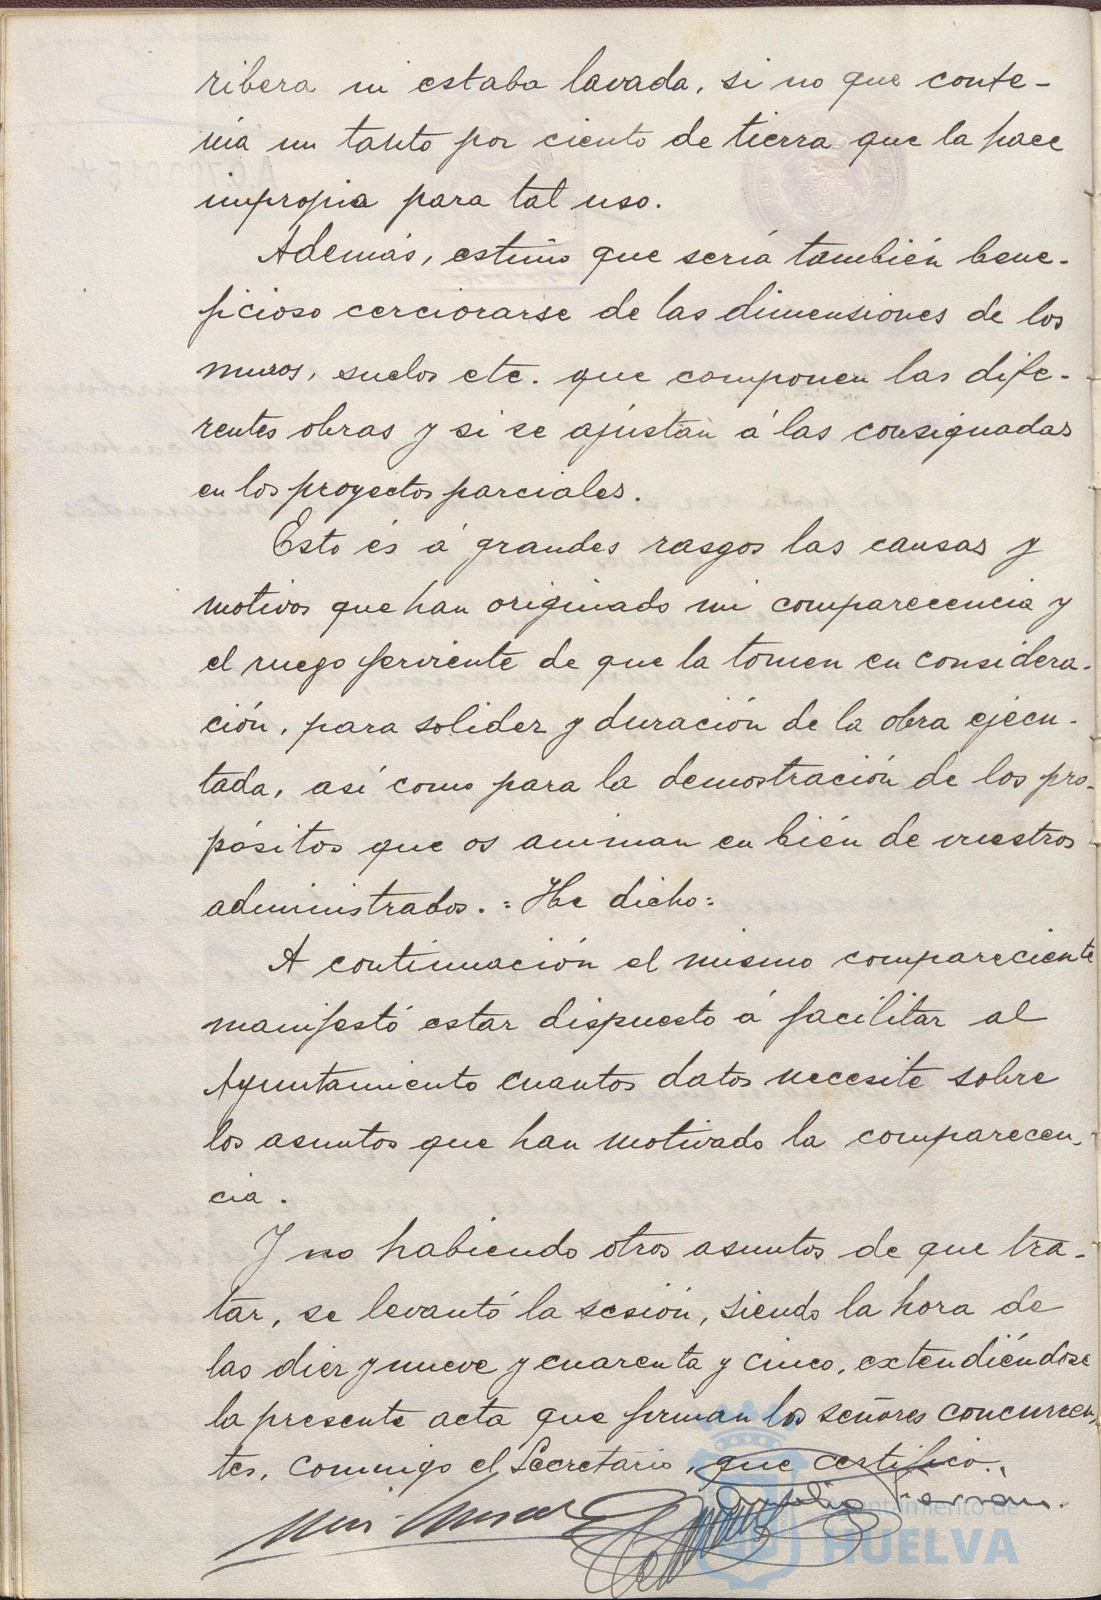 ribera ni estaba lavada, si no que conte-
nía un tanto por ciento de tierra que la hace
impropia para tal uso.
Además, estimo que sería también bene-
ficioso cerciorarse de las dimensiones de los
muros, suelos etc. que componen las dife-
rentes obras y si se ajustan á las consignadas
en los proyectos parciales.
Esto és á grandes rasgos las causas y
motivos que han originado mi comparecencia y
el ruego ferviente de que la tomen en considera-
ción, para solidez y duración de la obra ejecu-
tada, así como para la demostración de los pro-
pósitos que os animan en bién de vuestros
administrados.= He dicho=
A continuación el mismo compareciente
manifestó estar dispuesto á facilitar al
Ayuntamiento cuantos datos necesite sobre
los asuntos que han motivado la comparecen-
cia.
Y no habiendo otros asuntos de que tra-
tar, se levantó la sesión, siendo la hora de
las diez y nueve y cuarenta y cinco, extendiéndose
la presente acta que firman los señores concurren-
tes, conmigo el Secretario, que certifico.
Ayuntamiento de
HUELVA